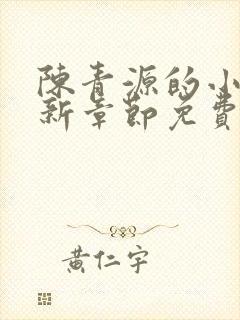 陳青源的小
新章節免費
黃仁宇